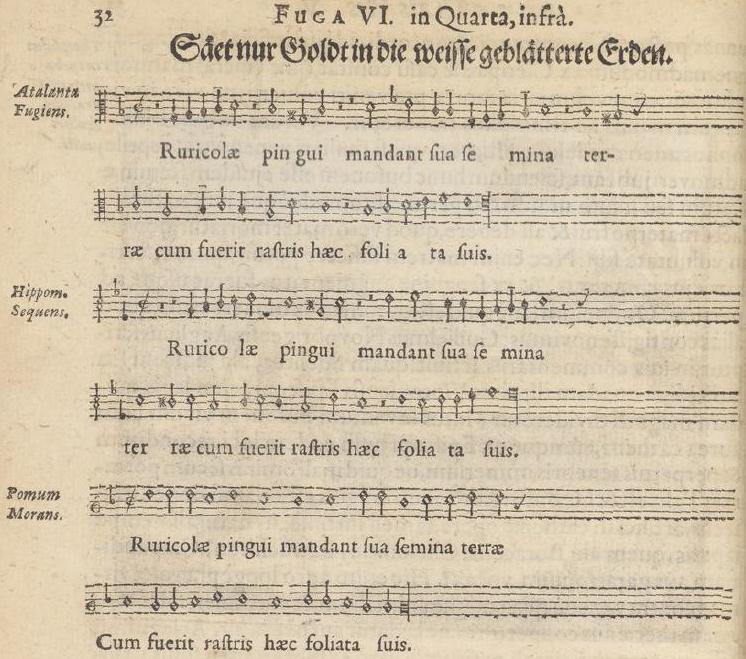 32 FUGA VI. in Quarta, infrà.
Säet nur Goldt in die weisse geblätterte Erden.
Atalanta
Fugiens.
Ruricolæ pin gui mandant ſua ſe mina ter-
ræ cum fuerit raſtris hæc foli a ta suis.
Hippom.
Sequens.
Rurico læ pingui mandant ſua ſe mina
ter ræ cum fuerit raſtris hæc folia ta ſuis.
Pomum
Morans.
Ruricolæ pingui mandant ſua ſemina terræ
Cum fuerit raſtris hæc foliata ſuis.